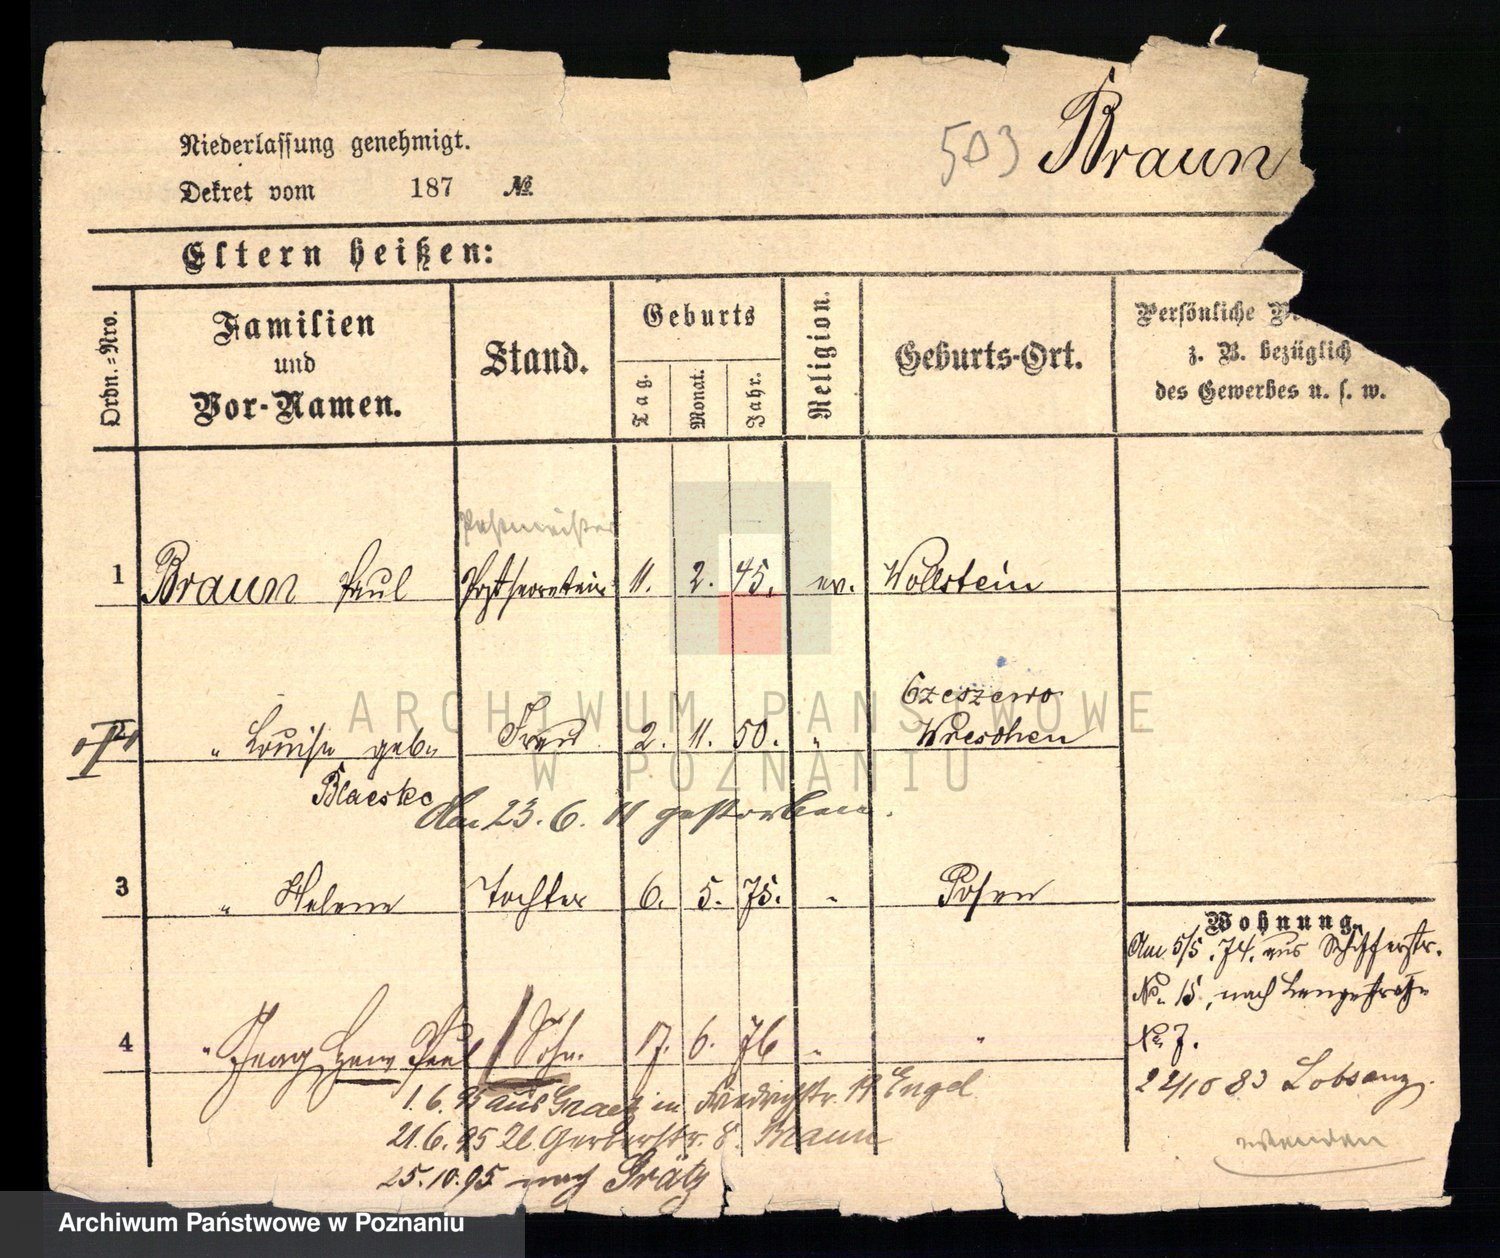 503 Braun
Niederlassung genehmigt.
Dekret vom 187 №
Eltern heißen:
Ordn.=Nro.
Familien
und
Vor-Namen.
Stand.
Geburts
Tag.
Monat.
Jahr.
Religion.
Geburts-Ort.
Persönliche
z. B. bezüglich
des Gewerbes u. s. w.
Postmeister
1 Braun Paul Postsecretair 11. 2. 45. ev. Wollstein
Czeszewo
" Louise geb. Frau 2. 11. 50. " Wreschen
Blaesko
Am 23. 6. 11 gestorben.
3 " Helene Tochter 6. 5. 75. " Posen
4 " Georg Hans Paul Sohn. 17. 6. 76 " "
1. 6. 95 aus Graetz in Friedrichstr. 19 Engel
21. 6. 95 Zl. Gerberstr. 8. Braun
25. 10. 95 nach Grätz
Wohnung.
Am 5/5. 74. aus Schifferstr.
No. 15, nach Langestraße
No 7.
22/10 83 Lobsens.
wenden
ARCHIWUM PAŃSTWOWE
W POZNANIU
Archiwum Państwowe w Poznaniu